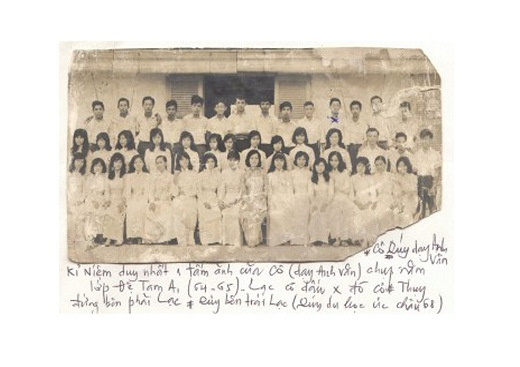 * Cô Qúy dạy Anh
Văn
Kỉ Niệm duy nhất 1 tấm ảnh của Cô (dạy Anh Văn) chụp năm
lớp Đệ Tam A1 (64-65)_ Lạc có dấu X đỏ
đứng bên phải Lạc # Qúy bên trái Lạc (Qúy du học Úc châu 68)